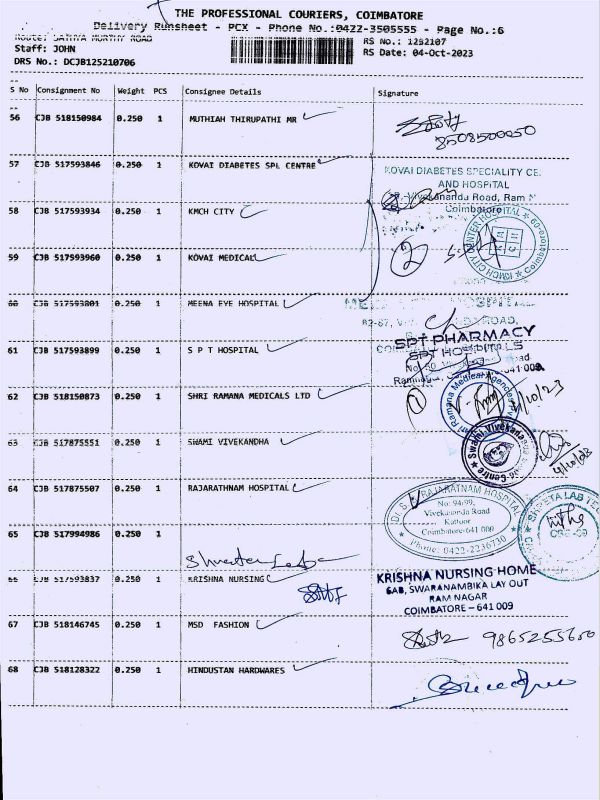 THE PROFESSIONAL COURIERS, COIMBATORE
Delivery Runsheet - PCX - Phone No.:0422-3505555 - Page No.:6
Route: SATHYA MURTHY ROAD
RS No.: 1252107
Staff: JOHN
RS Date: 04-Oct-2023
DRS No.: DCJB125210706
S No Consignment No Weight PCS Consignee Details Signature
56 CJB 518150984 0.250 1 MUTHIAH THIRUPATHI MR
8508500050
57 CJB 517593846 0.250 1 KOVAI DIABETES SPL CENTRE
KOVAI DIABETES SPECIALITY CE
AND HOSPITAL
Vivekananda Road, Ram N
Coimbatore
58 CJB 517593934 0.250 1 KMCH CITY
KMCH CITY CENTER HOSPITAL
Coimbatore-09
59 CJB 517593960 0.250 1 KOVAI MEDICAL
2
60 CJB 517593801 0.250 1 MEENA EYE HOSPITAL
ROAD,
SPT PHARMACY
61 CJB 517593899 0.250 1 S P T HOSPITAL
SPT HOSPITALS
Road
Ramnagar, 641 009
62 CJB 518150873 0.250 1 SHRI RAMANA MEDICALS LTD
Ramana Medical Agencies
/10/23
63 CJB 517875551 0.250 1 SWAMI VIVEKANDHA
Swami Vivekananda
Centre
4/10/23
64 CJB 517875507 0.250 1 RAJARATHNAM HOSPITAL
RAJARATNAM HOSPITAL
No: 94/99,
Vivekananda Road
Kattoor
Coimbatore-641 009
Phone: 0422-2236730
SHREEYA LAB
65 CJB 517994986 0.250 1
66 CJB 517593837 0.250 1 KRISHNA NURSING
KRISHNA NURSING HOME
6AB, SWARANAMBIKA LAY OUT
RAM NAGAR
COIMBATORE – 641 009
67 CJB 518146745 0.250 1 MSD FASHION
9865255650
68 CJB 518128322 0.250 1 HINDUSTAN HARDWARES